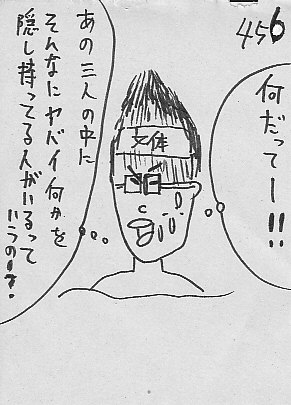 456
何だってー!!
文体
あの三人の中に
そんなにヤバイ何かを
隠し持ってる人がいるって
いうのー?